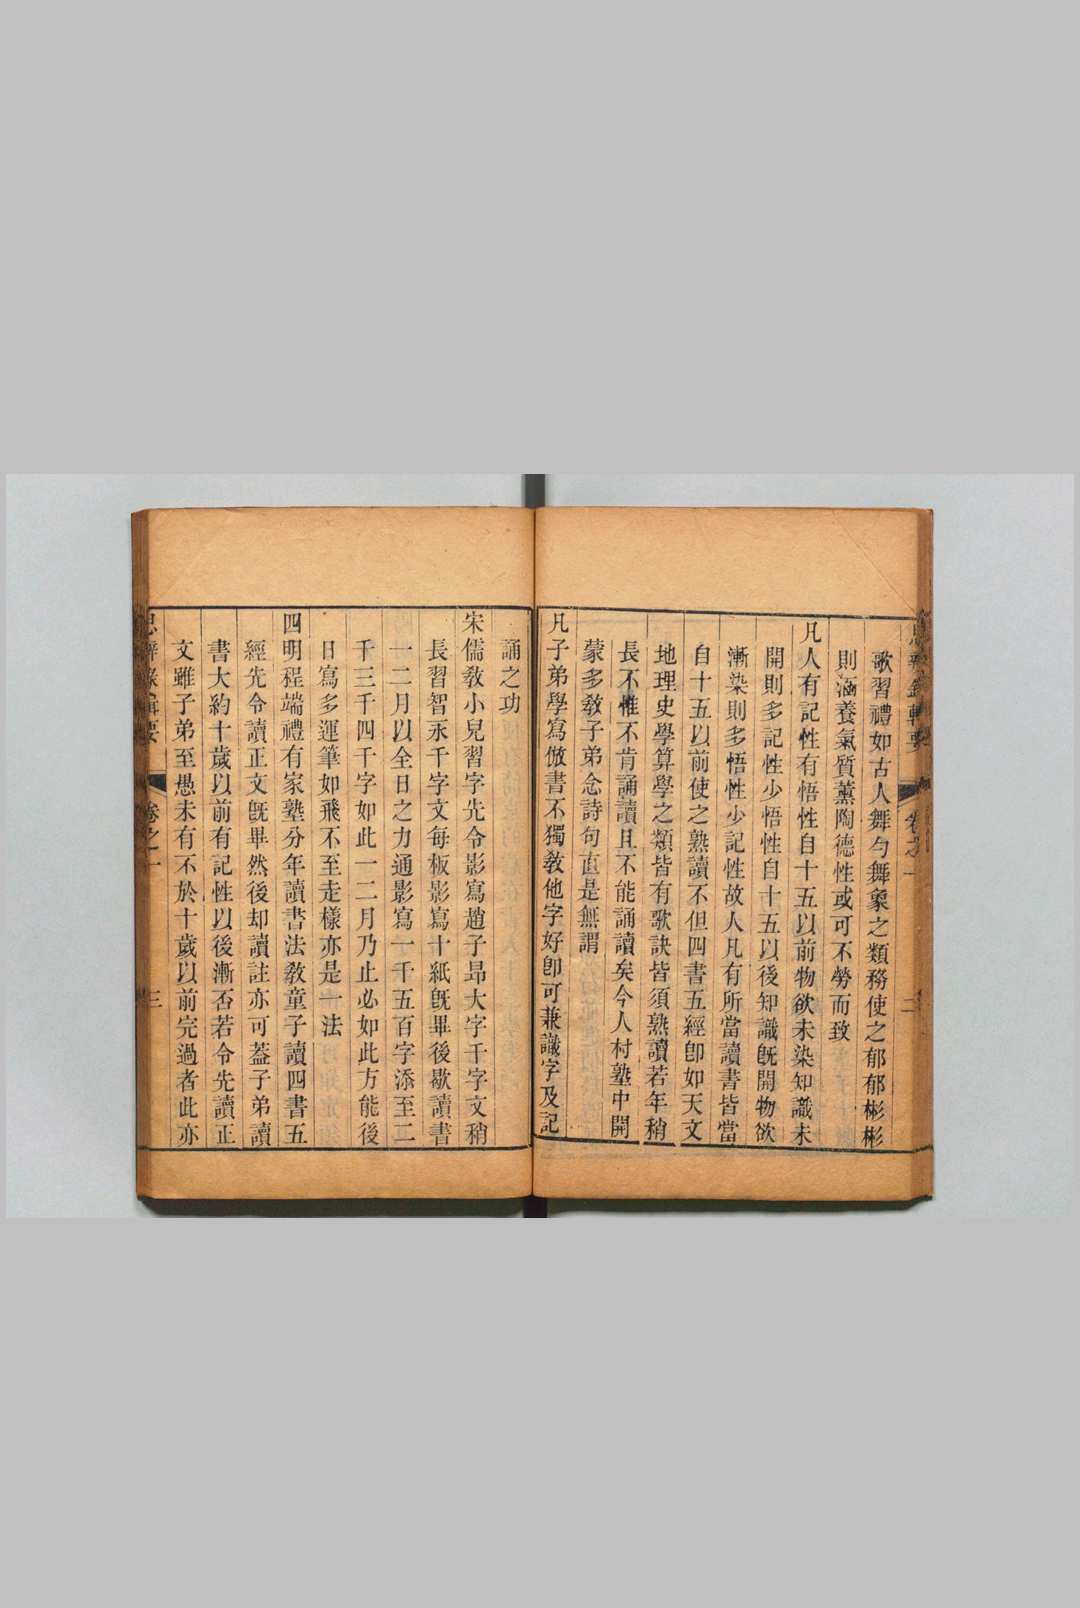 思辨錄輯要 卷之一 二
歌習禮如古人舞勺舞象之類務使之郁郁彬彬
則涵養氣質薰陶德性或可不勞而致
凡人有記性有悟性自十五以前物欲未染知識未
開則多記性少悟性自十五以後知識旣開物欲
漸染則多悟性少記性故人凡有所當讀書皆當
自十五以前使之熟讀不但四書五經卽如天文
地理史學算學之類皆有歌訣皆須熟讀若年稍
長不惟不肯誦讀且不能誦讀矣今人村塾中開
蒙多敎子弟念詩句直是無謂
凡子弟學寫倣書不獨敎他字好卽可兼識字及記
誦之功
宋儒敎小兒習字先令影寫趙子昂大字千字文稍
長習智永千字文每板影寫十紙旣畢後歇讀書
一二月以全日之力通影寫一千五百字添至二
千三千四千字如此一二月乃止必如此方能後
日寫多運筆如飛不至走樣亦是一法
四明程端禮有家塾分年讀書法敎童子讀四書五
經先令讀正文旣畢然後却讀註亦可蓋子弟讀
書大約十歲以前有記性以後漸否若令先讀正
文雖子弟至愚未有不於十歲以前完過者此亦
思辨錄輯要 卷之一 三